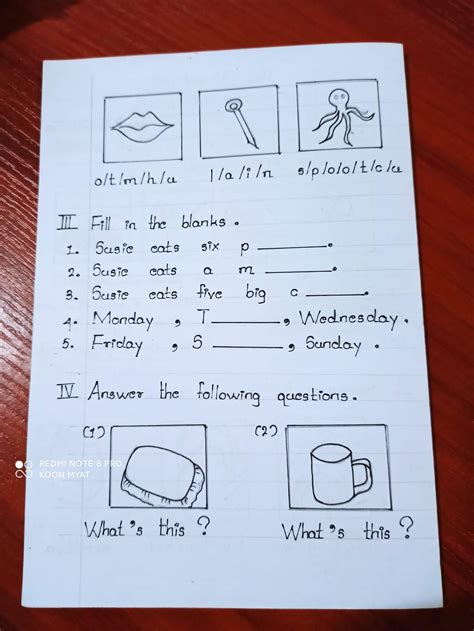 o/t/m/h/u
l/a/i/n
s/p/o/o/t/c/u
III Fill in the blanks.
1. Susie eats six p ________.
2. Susie eats a m ________.
3. Susie eats five big c ________.
4. Monday, T________, Wednesday.
5. Friday, S ________, Sunday.
IV Answer the following questions.
(1) (2)
What's this? What's this?
REDMI NOTE 8 PRO
KOON MYAT